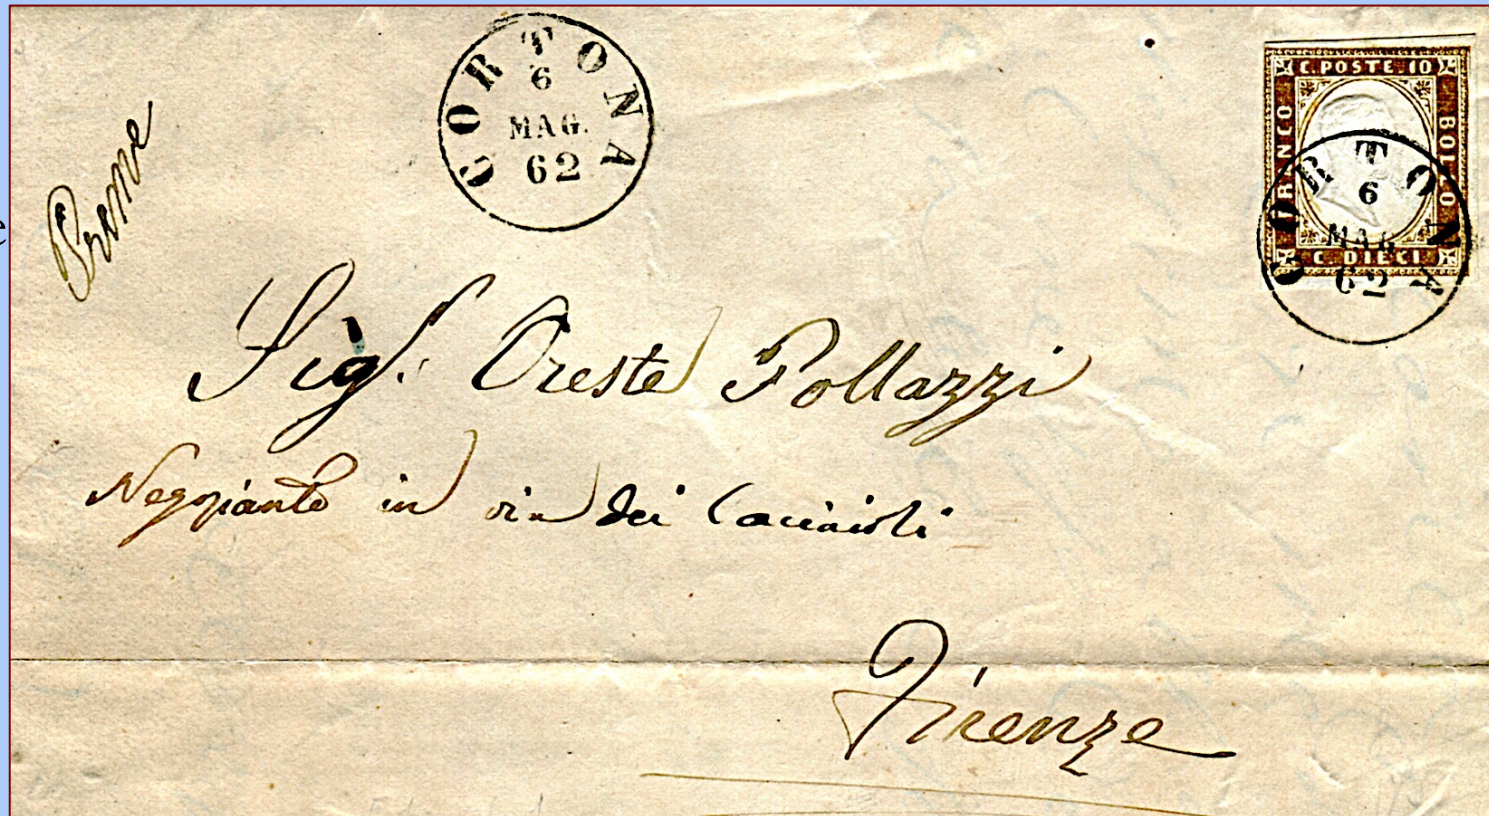 CORTONA
6
MAG.
62
C. POSTE 10
FRANCO
BOLLO
C. DIECI
CORTONA
6
MAG
62
Sigr. Oreste Pollazzi
Negoziante in via dei Cacciaioli
Firenze